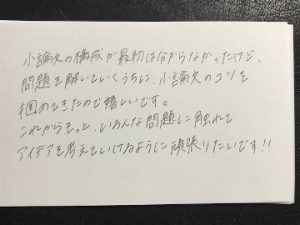 小論文の構成が最初は分からなかったけど、
問題を解いていくうちに、小論文のコツを
掴めてきたので嬉しいです。
これからもっと、いろんな問題に触れて
アイデアを考えていけるように頑張りたいです!!